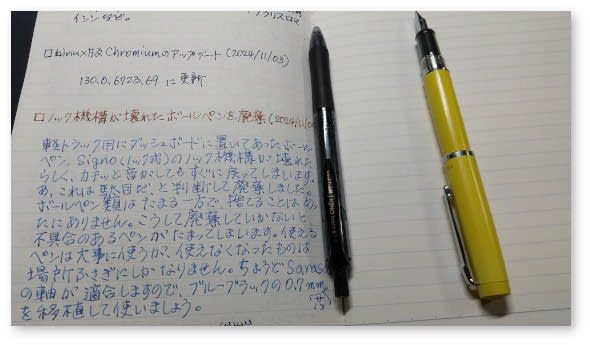 イシンなど。
□Linux版Chromiumのアップデート(2024/11/03)
130.0.6723.69 に更新
□ノック機構が壊れたボールペンを廃棄(2024/11/0
軽トラック用にダッシュボードに置いてあったボール
ペン、Signo(ノック式)のノック機構が壊れた
らしく、カチッと音がしてもすぐに戻ってしまいます。
あ、これは駄目だ、と判断して廃棄しました。
ボールペン類はたまる一方で、捨てることはめっ
たにありません。こうして廃棄していかないと、
不具合のあるペンがたまってしまいます。使える
ペンは大事に使うが、使えなくなったものは
場所ふさぎにしかなりません。ちょうどSarasa
の軸が適合しますので、ブルーブラックの0.7mm
を移植して使いましょう。